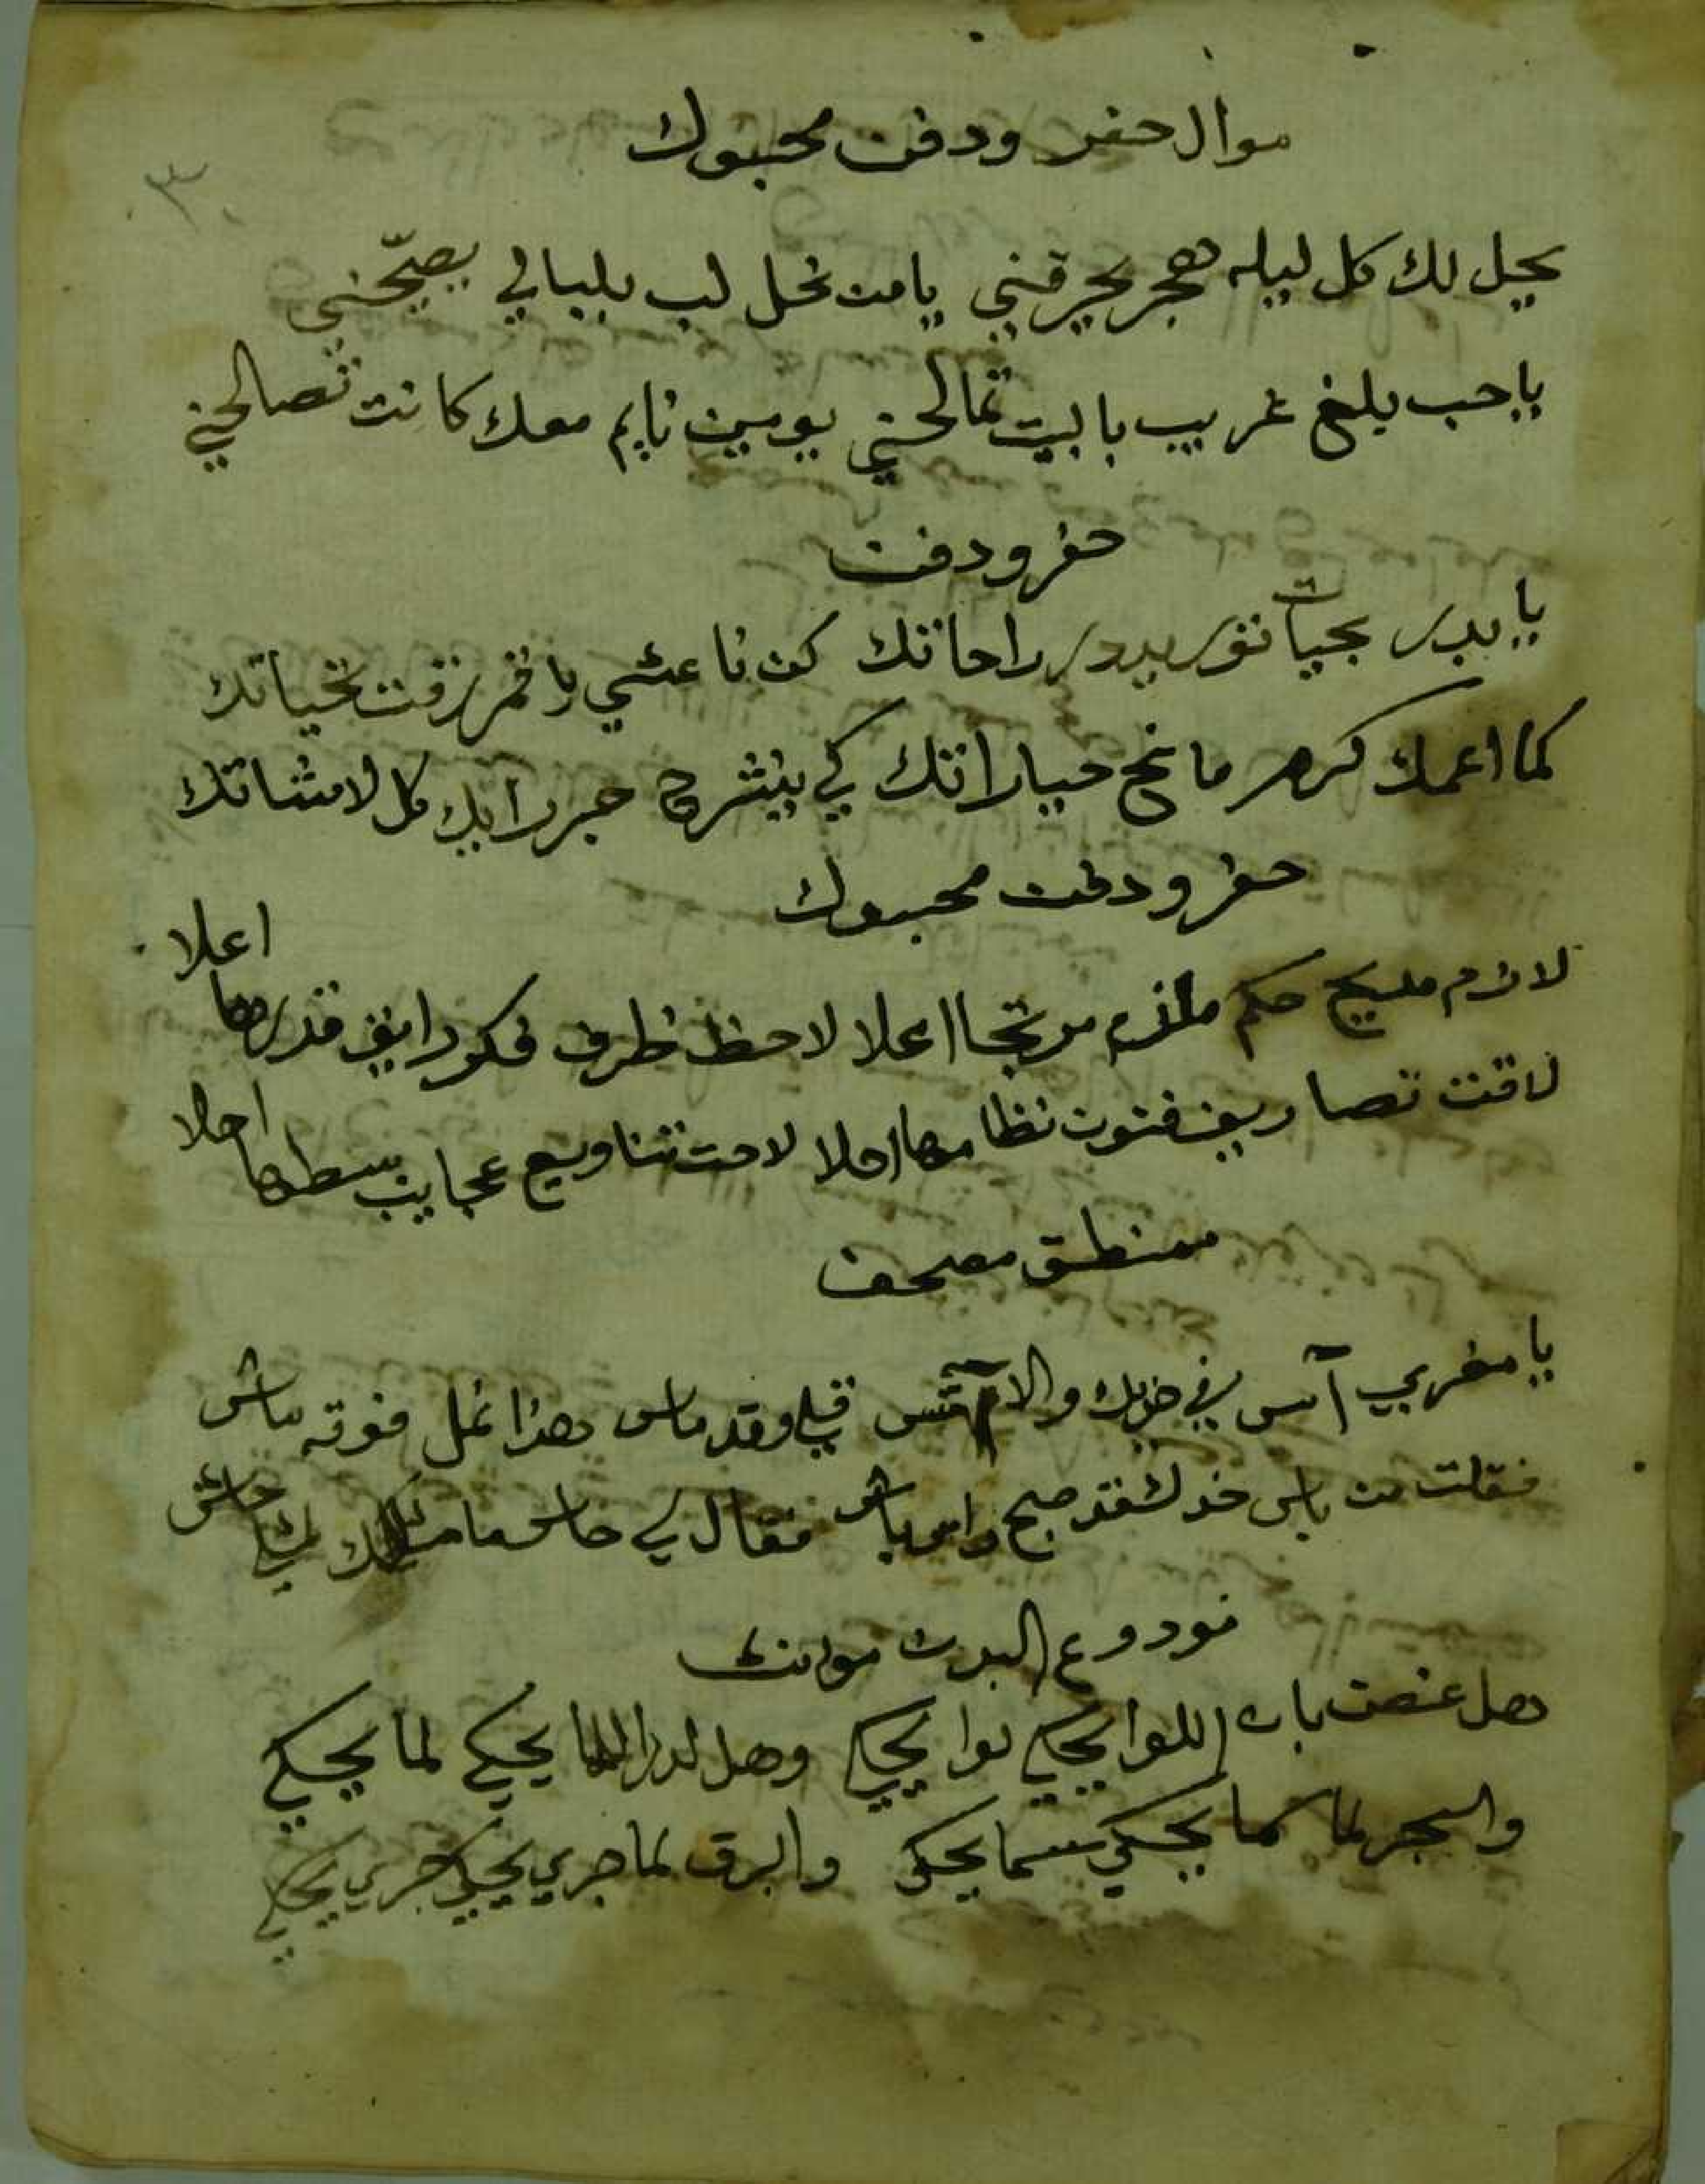 موال حفر ودفن محبوك
٣
يحل لك كل ليله هجر يحرقني يا من نحل لب بلبالي يصبّحني
يا حب بلغ غريب بالبيت تمالحني يومين نايم معك كانت تصالحني
حفر ودفن
يا بدر بجبات نور بيدر راحاتك كن ناعشي يا قمر زقت تحياتك
كما اعمك كرم مانح حياراتك كي ينشرح حبر رايك كل لامشاتك
حفر ودفن محبوك
لازم مليح حكم ملزم مرتجا اعلا لاحظ ظرف فكور رايق قدرها اعلا
لاقت تصاريف فنون نظامها احلا لاحت تناويع عجايب بسطها احلا
منطق مصحف
يا مغربي آس في خربك والا قيلي وقد ماس هذا نمل فوقه ماش
فقلت من باس خدك فقد صبح راس باش فقال لي حاش ما حاش
مودوع البدن
هل غصن بان اللوا يحكي لوا يحكي وهل لدر اللما يحكي لما يحكي
والبحر لما كما يحكي سما يحكي والبرق لما جري يحكي جري يحكي